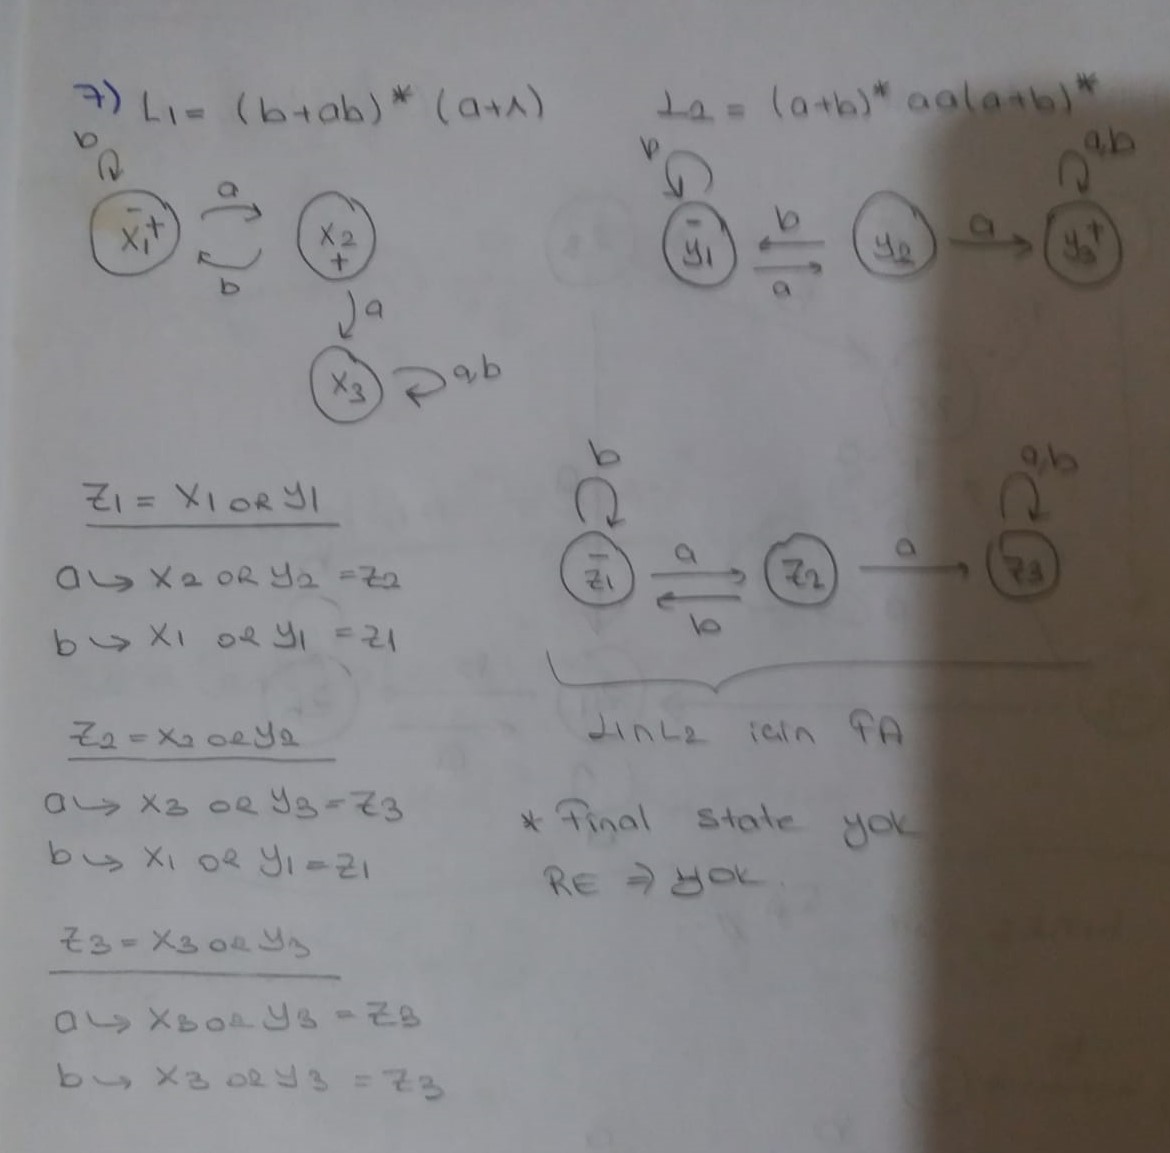 7) L1 = (b+ab)* (a+Λ)
L2 = (a+b)* aa(a+b)*
b
x1 - +
a
b
x2 +
a
x3
a,b
b
- y1
b
a
y2
a
y3 +
a,b
Z1 = X1 OR Y1
a↪ X2 OR Y2 = Z2
b↪ X1 OR Y1 = Z1
Z2 = X2 OR Y2
a↪ X3 OR Y3 = Z3
b↪ X1 OR Y1 = Z1
Z3 = X3 OR Y3
a↪ X3 OR Y3 = Z3
b↪ X3 OR Y3 = Z3
b
- Z1
a
b
Z2
a
Z3
a,b
L1∩L2 için FA
* Final state yok
RE ⇒ yok.